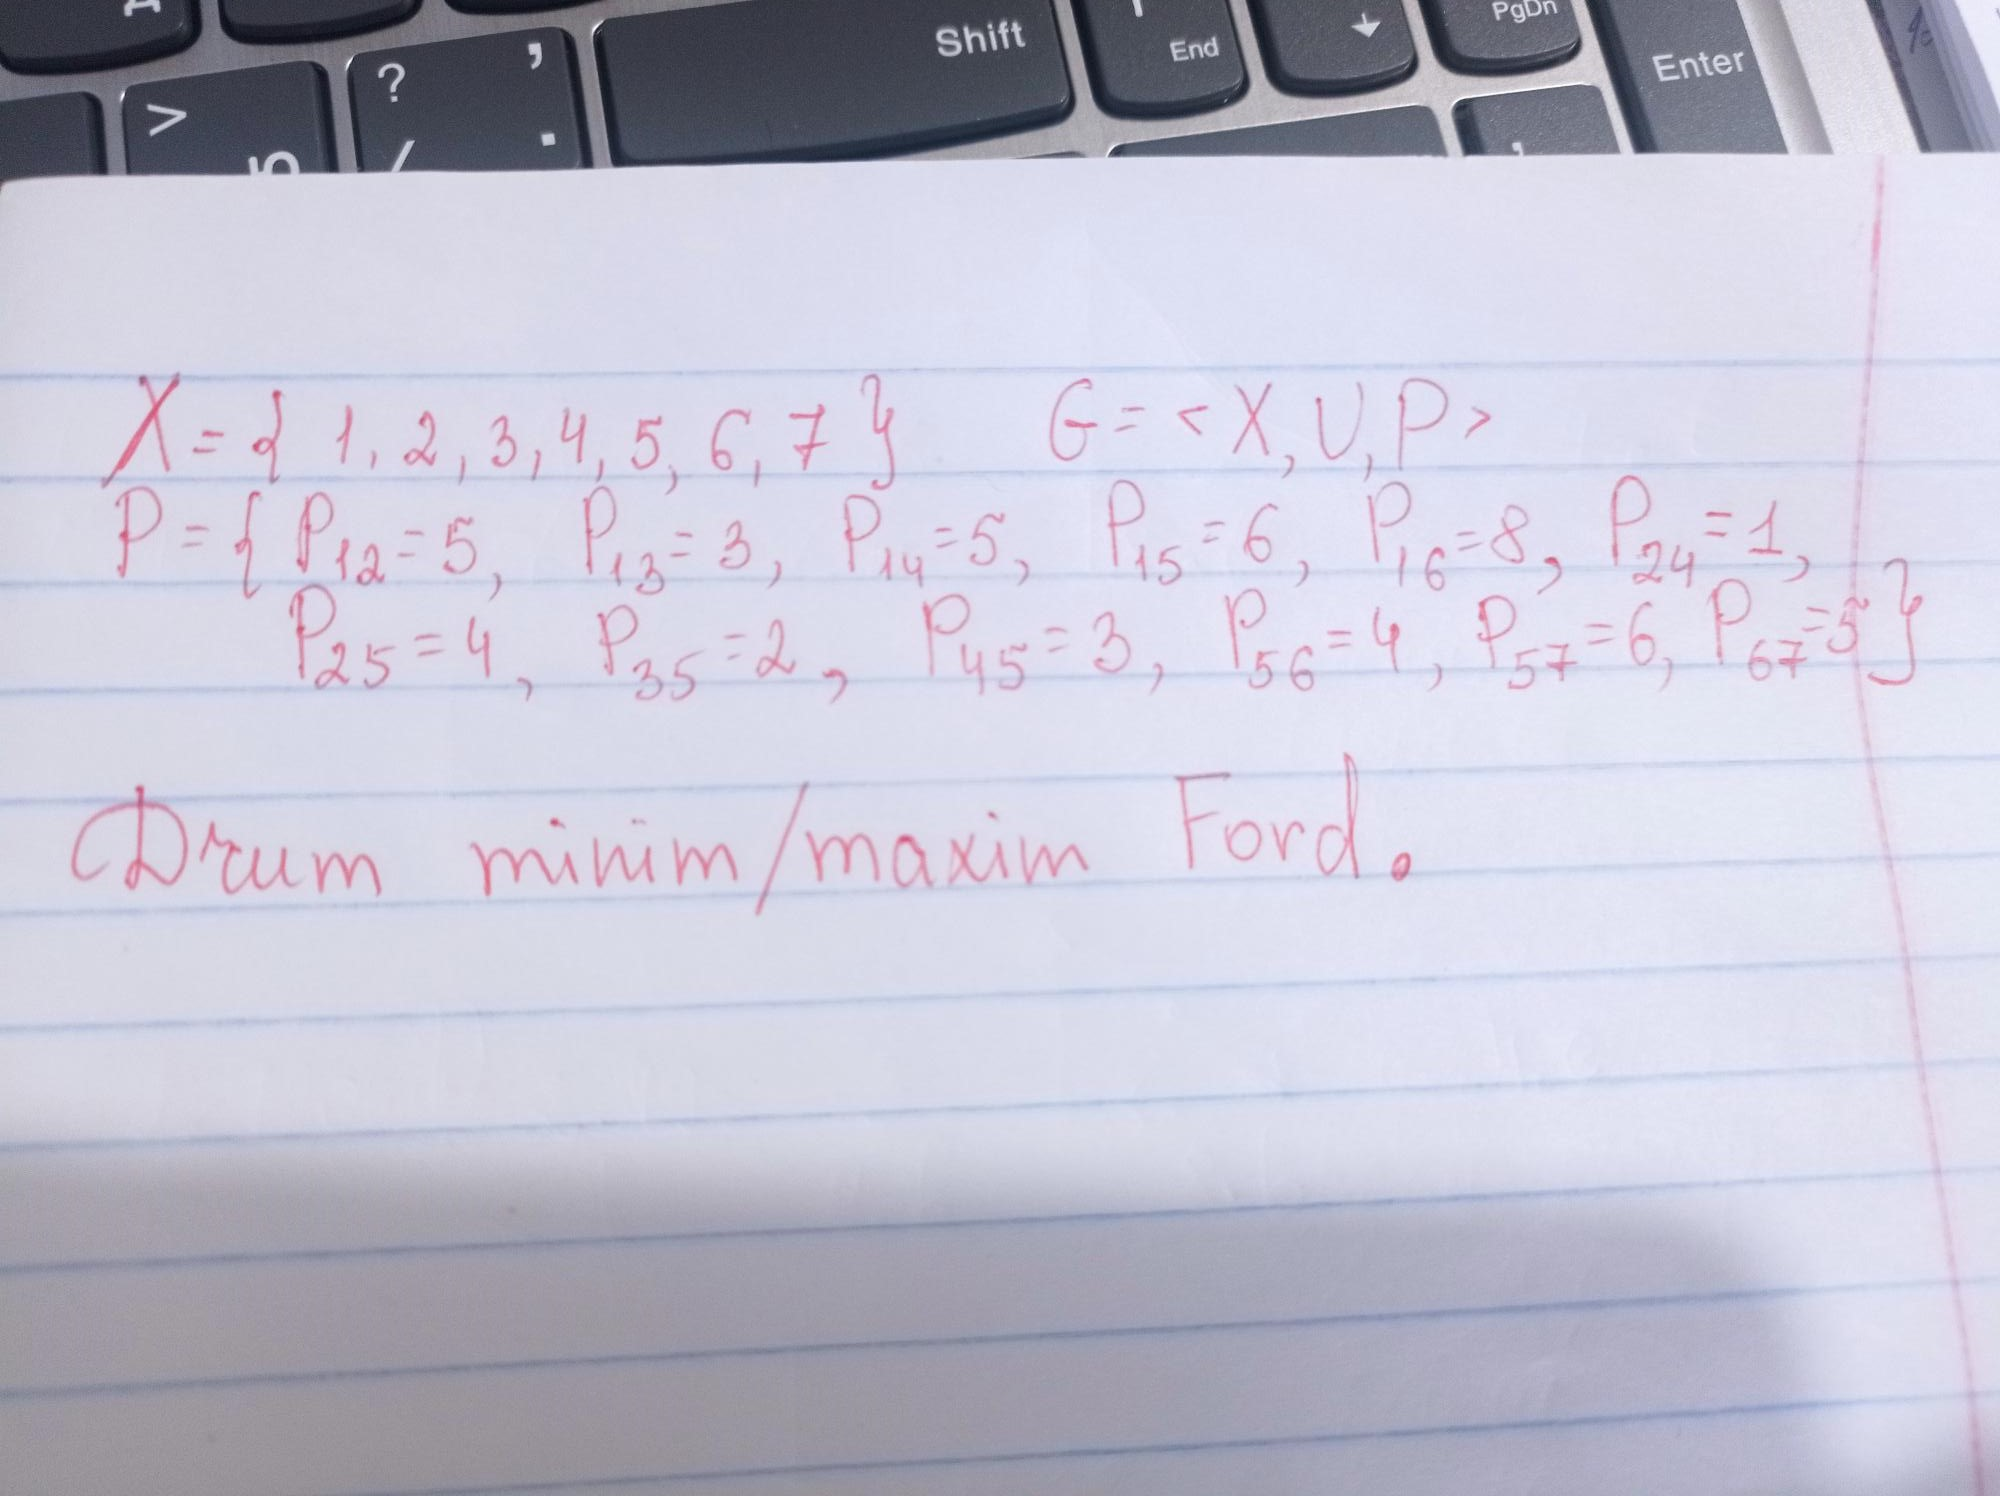 Shift
End
PgDn
Enter
>
?
,
/
.
X = { 1, 2, 3, 4, 5, 6, 7 } G = < X, U, P >
P = { P12 = 5, P13 = 3, P14 = 5, P15 = 6, P16 = 8, P24 = 1,
P25 = 4, P35 = 2, P45 = 3, P56 = 4, P57 = 6, P67 = 5 }
Drum minim/maxim Ford.